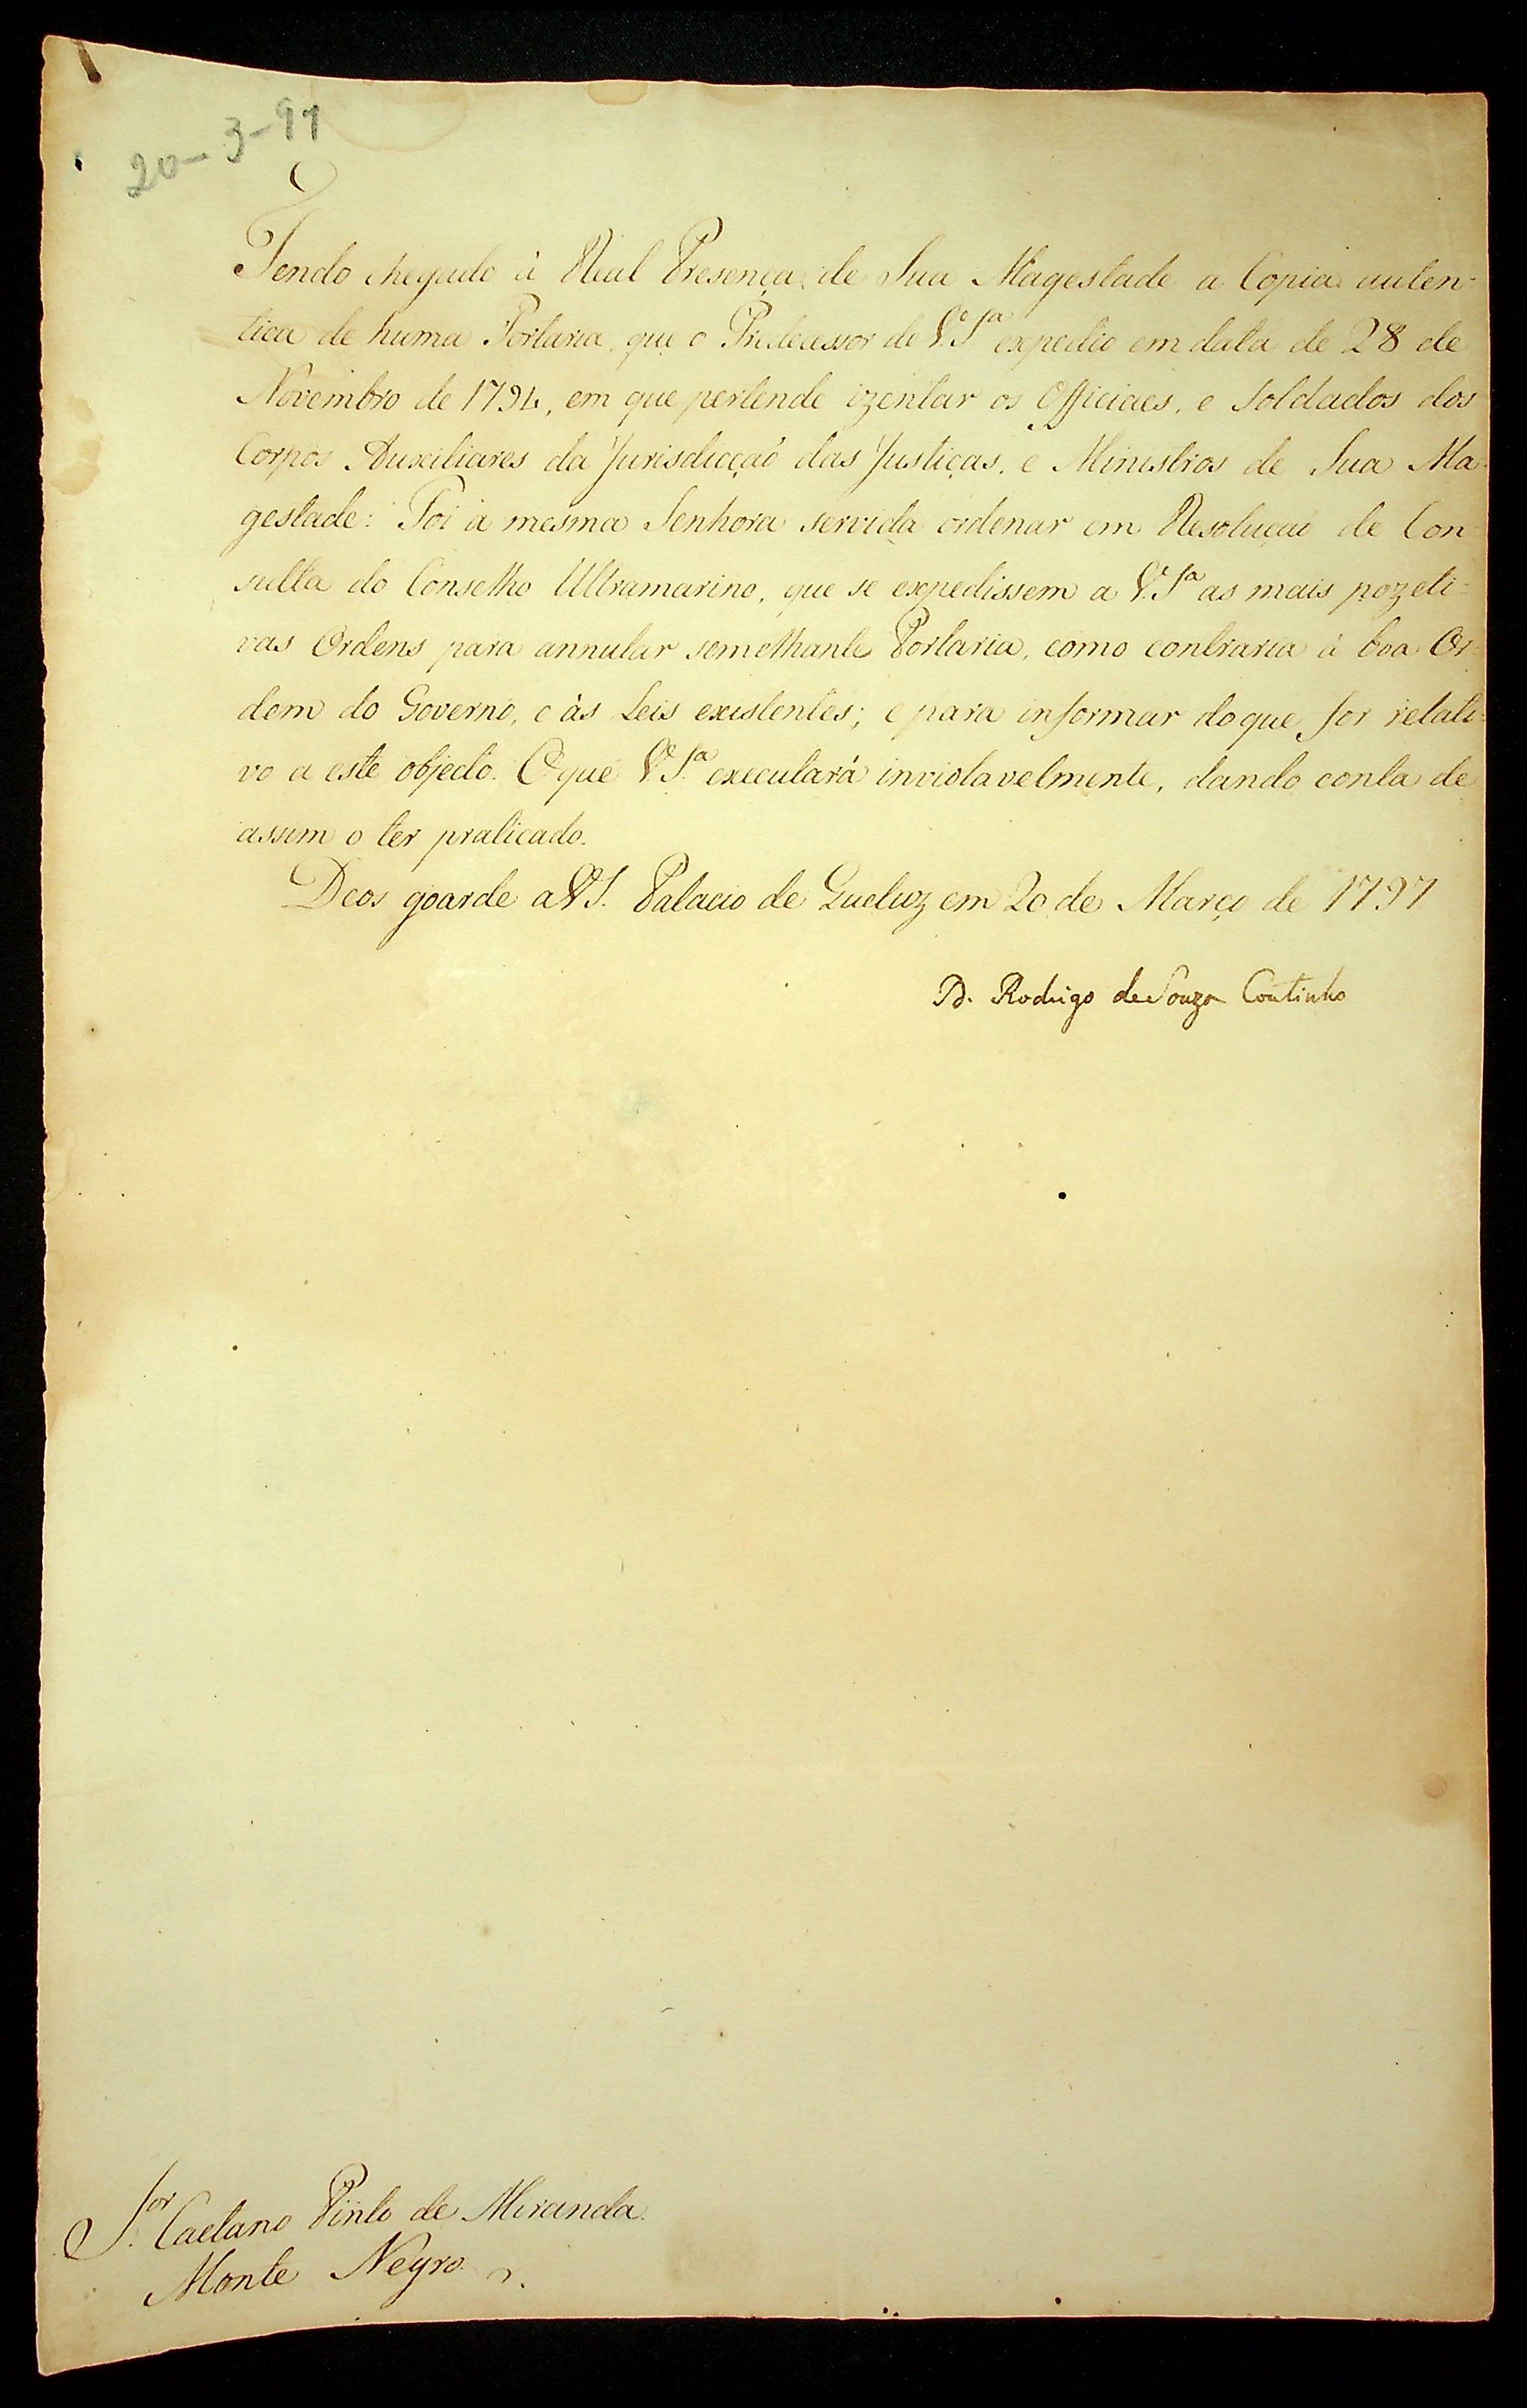 20-3-97
Tendo chegado á Real Presença de Sua Magestade a Copia auten-
tica de huma Portaria, que o Predecessor de V.Sª expedio em data de 28 de
Novembro de 1794, em que pertende izentar os Officiaes, e Soldados dos
Corpos Auxiliares da Jurisdicçaõ das Justiças, e Ministros de Sua Ma-
gestade: Foi a mesma Senhora servida ordenar em Resoluçaõ de Con
sulta do Conselho Ultramarino, que se expedissem a V.Sª as mais pozeti=
vas Ordens para annular semelhante Portaria, como contraria á boa Or=
dem do Governo, e às Leis existentes; e para informar do que for relati=
vo a este objecto. O que V.Sª executará inviolavelmente, dando conta de
assim o ter praticado.
Deos goarde a V.S. Palacio de Queluz em 20 de Março de 1797
D. Rodrigo de Souza Coutinho
S.or Caetano Pinto de Miranda
Monte Negro.